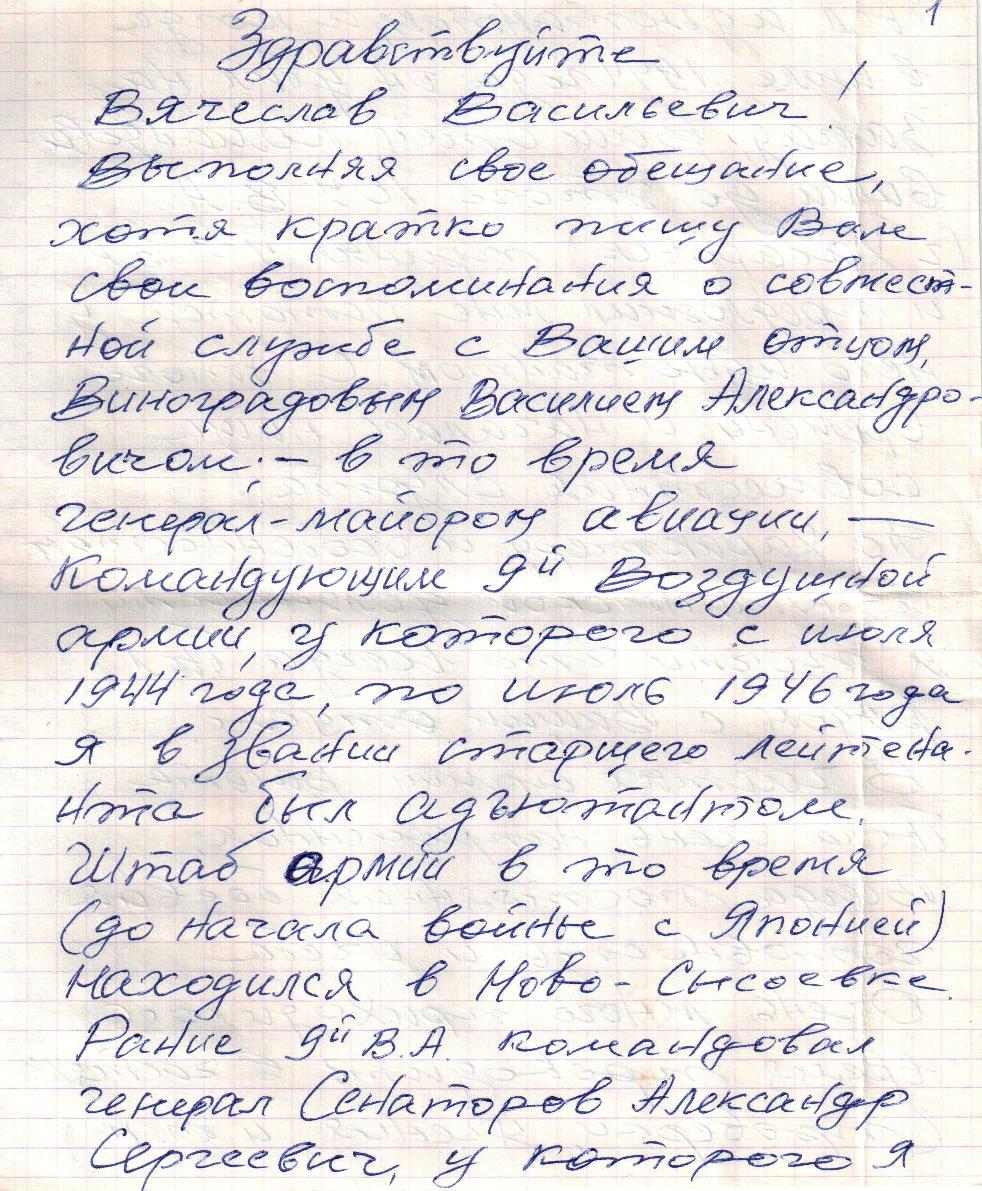 1
Здравствуйте
Вячеслав Васильевич!
Выполняя свое обещание,
хотя кратко пишу Вам
свои воспоминания о совмест-
ной службе с Вашим отцом,
Виноградовым Василием Александро-
вичом; – в то время
генерал-майором авиации, —
Командующим 9й Воздушной
армии, у которого с июля
1944 года, по июль 1946 года
я в звании старшего лейтена-
нта был адъютантом.
Штаб армии в это время
(до начала войны с Японией)
находился в Ново-Сысоевке.
Ранее 9й В.А. командовал
генерал Сенаторов Александр
Сергеевич, у которого я